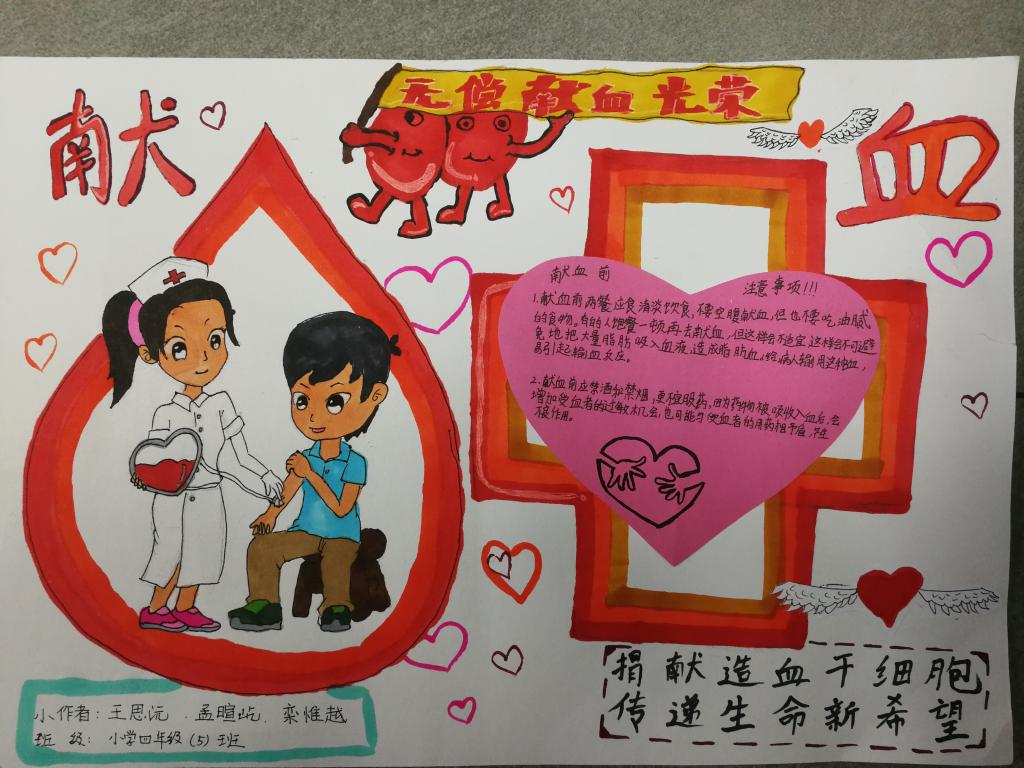 献
血
无偿献血光荣
献血前
注意事项!!!
1.献血前两餐应食清淡饮食,不要空腹献血,但也不要吃油腻
的食物。有的人饱餐一顿再去献血,但这样会不适宜,这样会不可避
免地把大量脂肪吸入血液,造成脂肪血。给病人输用这种血,
易引起输血反应。
2.献血前应禁酒和禁烟,更不宜服药,因为药物被吸收入血后,会
增加受血者的过敏机会,也可能与受血者的用药相矛盾,产生
不良作用。
捐献造血干细胞
传递生命新希望
小作者:王思沅、孟暄屹、栾惟越
班级:小学四年级(5)班